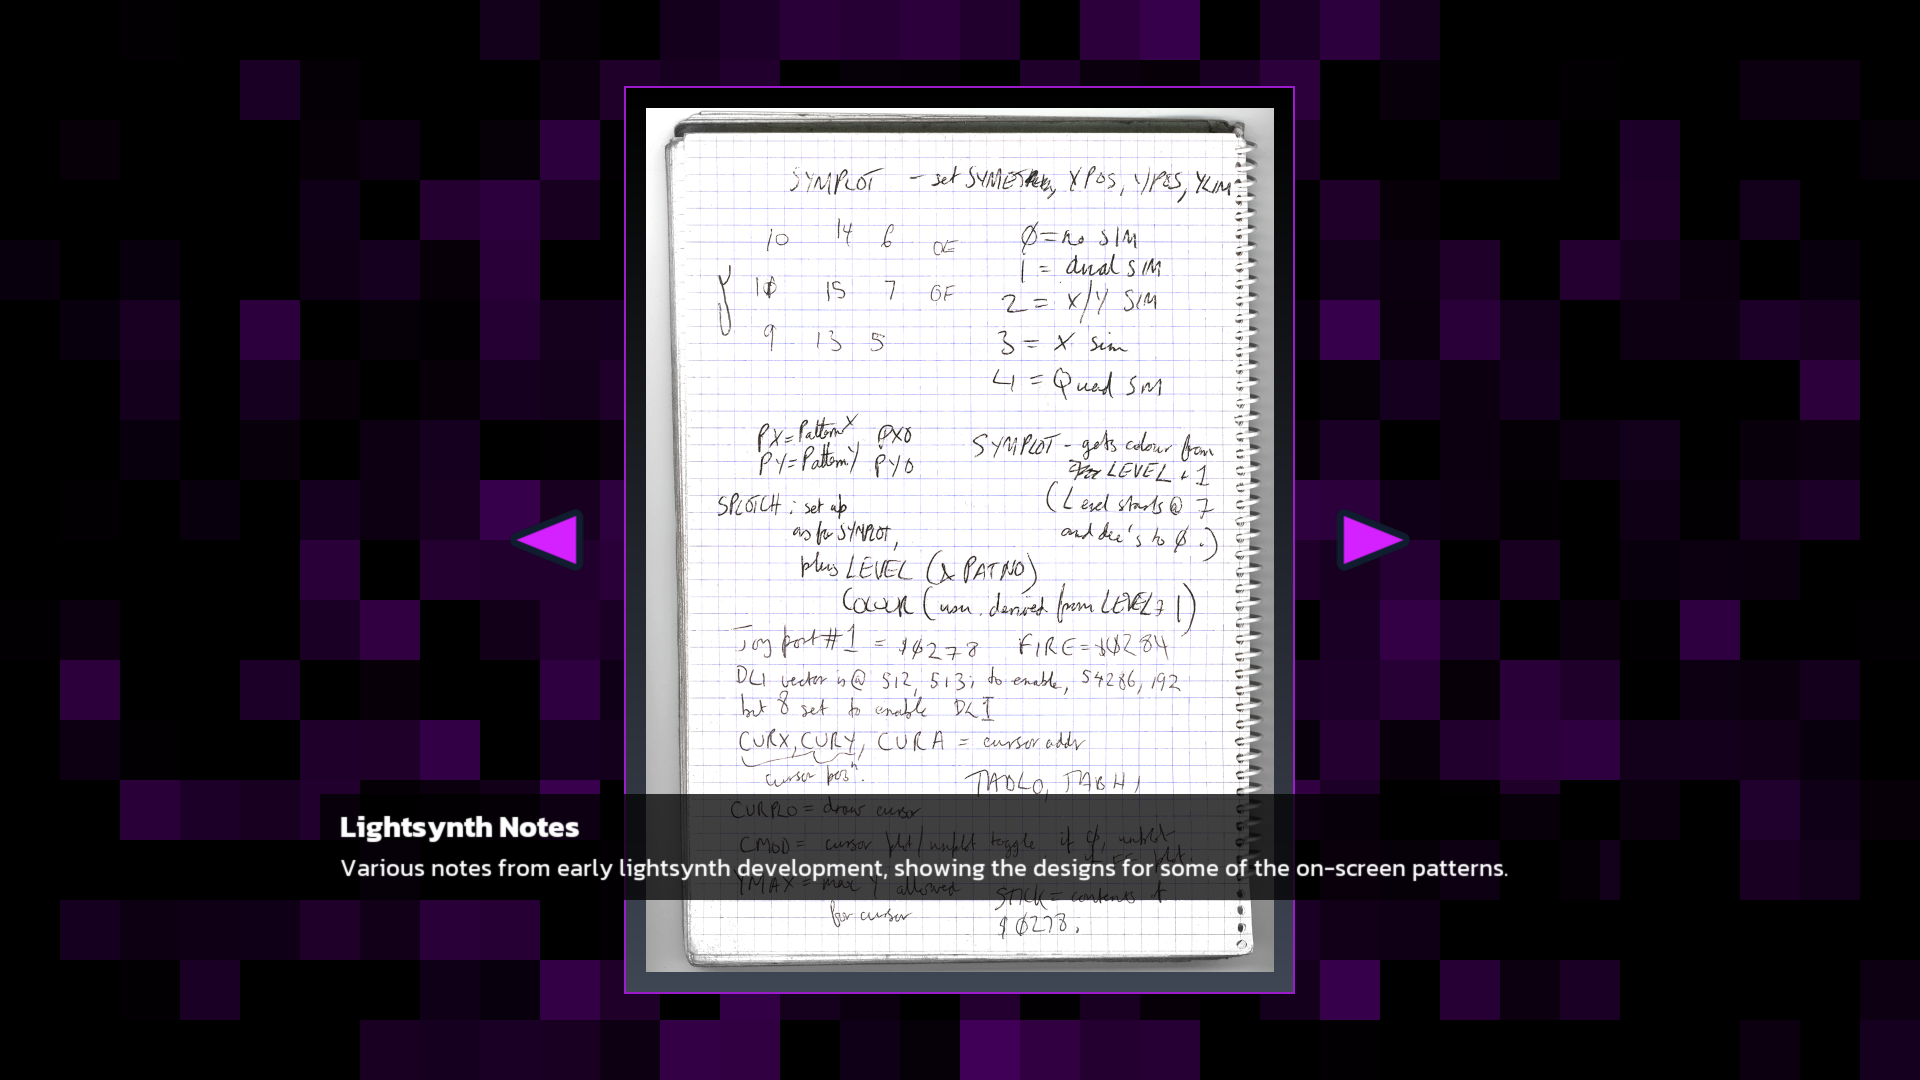 SYMPLOT - set SYMETRY, XPOS, YPOS, YLIM
10 14 6 0E
Y 10 15 7 0F
9 13 5
Ø = no SIM
1 = dual SIM
2 = X/Y SIM
3 = X sim
4 = Quad SIM
PX = Pattern X PX0
PY = Pattern Y PY0
SYMPLOT - gets colour from
LEVEL + 1
(Level starts @ 7
and dec's to Ø.)
SPLOTCH : set up
as for SYMPLOT,
plus LEVEL (& PATNO)
COLOUR (usu. derived from LEVEL + 1)
Joy port #1 = $Ø278 FIRE = $Ø284
DLI vector is @ 512, 513; to enable, 54286, 192
bit 8 set to enable DLI
CURX, CURY, CURA = cursor addr
cursor posn.
TABLO, TABHI
CURPLO = draw cursor
CMOD = cursor plot/unplot toggle if Ø, unplot
plot.
YMAX = max Y allowed
for cursor
STICK = contents of
$Ø278.
Lightsynth Notes
Various notes from early lightsynth development, showing the designs for some of the on-screen patterns.